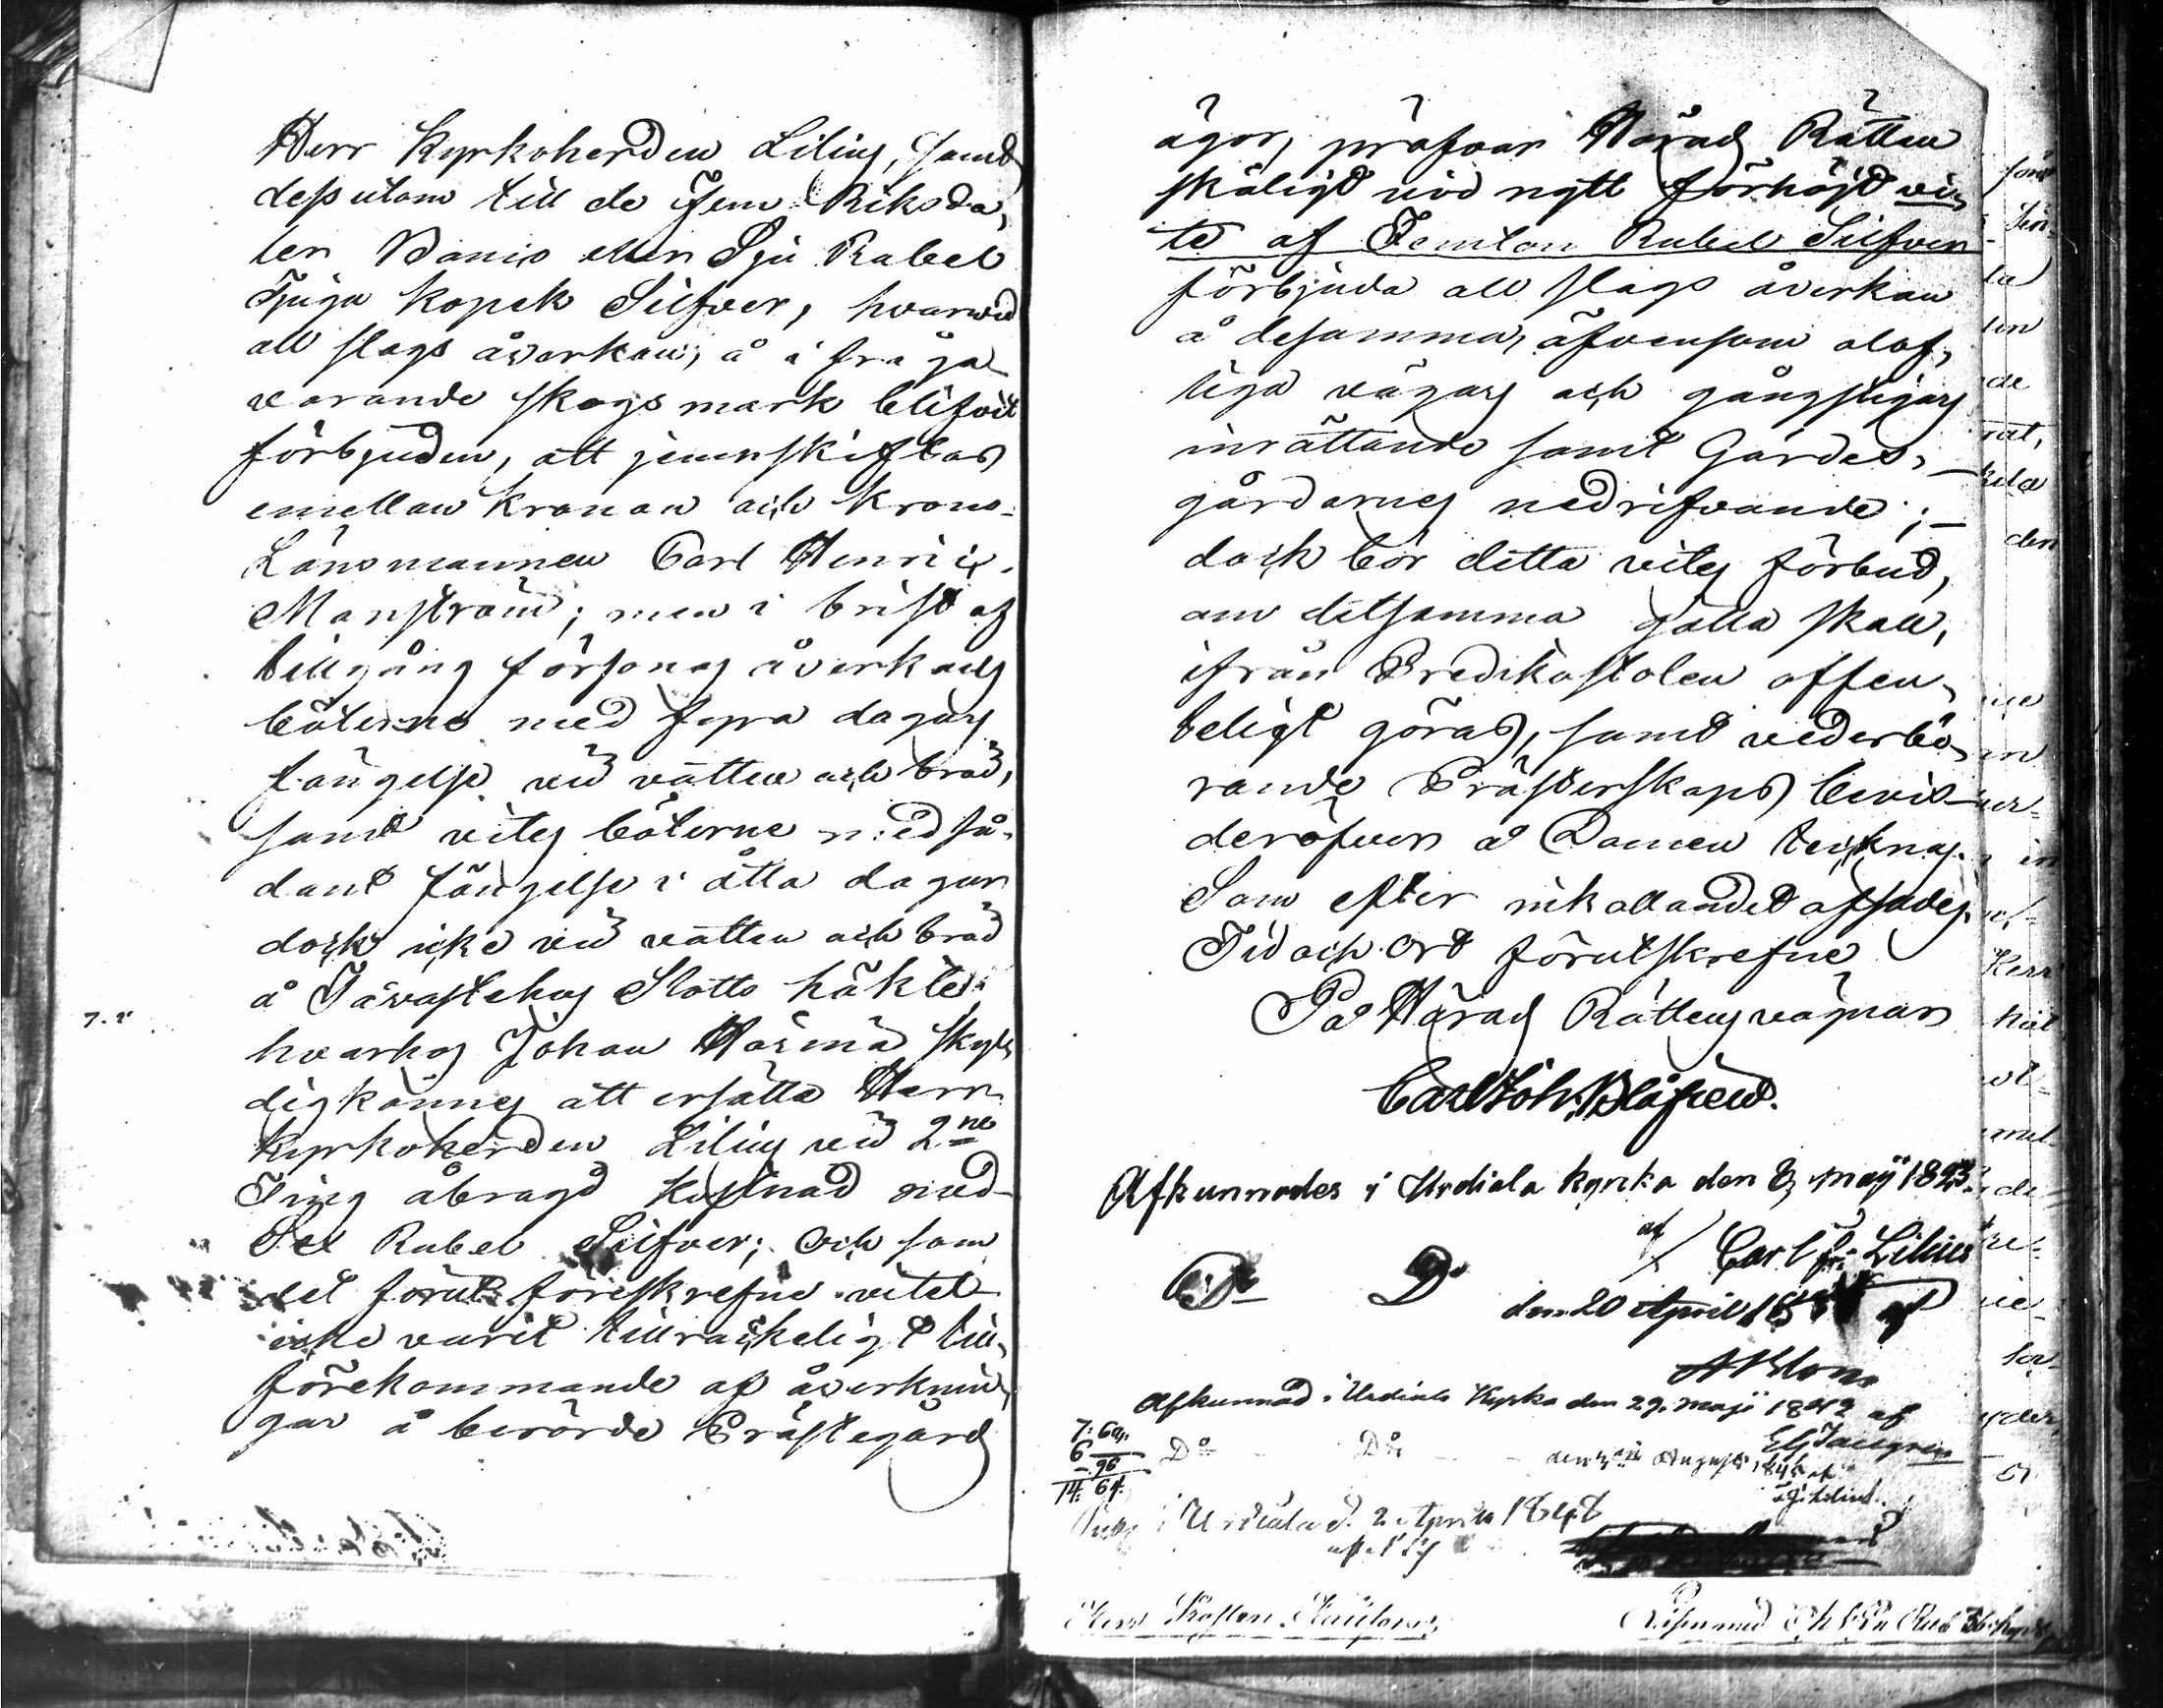 Herr Kyrkoherden Lilius, samt
dess utom till de Fem Riksda„
ler Banco eller Sju Rubel
Tjugu kopek Silfver, hvarvid
all slags åverkan, å i fråga
varande skogsmark blifvit
förbjuden, att jemnskiftas
emellan Kronan och Krono-
Länsmannen Carl Henric
Manström; men i brist af
tillgång försonas åverkans
böterne med fyra dagars
fängelse vid vatten och bröd,
samt vites böterne med så„
dant fängelse i åtta dagar
dock icke vid vatten och bröd
å Tavastehus Slotts häkte:
7.2
hvarhos Johan Härmä skyl„
dig kännes att ersätta Herr
Kyrkoherden Lilius vid 2ne
Ting åbragd kostnad med
Sex Rubel Silfver; Och som
det förut föreskrefne vitet
icke varit tillräckeligt till
förekommande af åverknin„
gar å berörde Prästegårds
ägor, pröfvar Härads Rätten
skäligt vid nytt förhöjt vi„
te af Femton Rubel Silfver
förbjuda all slags åverkan
å desamma, äfvensom olof„
liga vägars och gångstigars
inrättande samt Gärdes„
gårdarnes nedrifvande;–
dock bör detta vites förbud,
om detsamma gälla skall,
ifrån Predikostolen offen„
teligt göras, samt vederbö„
rande Prästerskaps bevis
deröfver å Domen tecknas.
Som efter inkallandet afsades.
Tid och Ort förutskrefne
På Härads Rättens vägnar
Carl Joh. Blåfield.
Afkunnades i Urdiala kyrka den 8 maji 1823.
af Carl Fr: Lilius
Do Do den 20 April 18
af
A Blom
Afkunnad i Urdiala Kyrka den 29. maji 1842 af
7: 60.
6
96
14: 64.
Do Do den Augusti
i Urdiala d. 2 April 1848